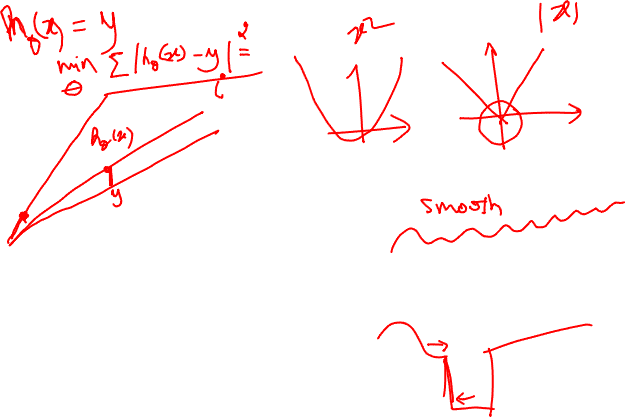 h_θ(x) = y
min Σ |h_θ(x) - y|² =
θ
h_θ(x)
y
x²
|x|
smooth